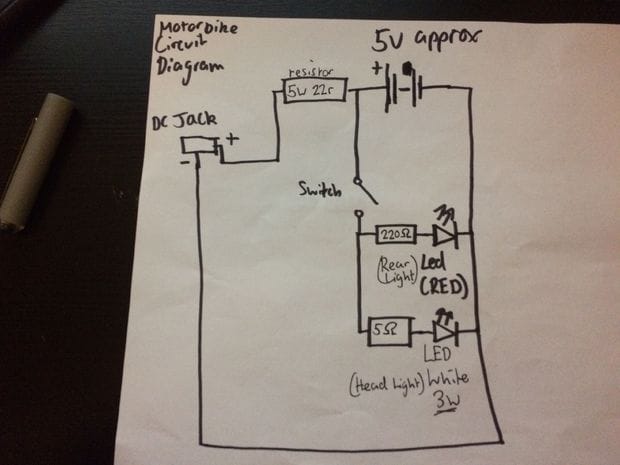 Motorbike
Circuit
Diagram
5V approx
resistor
5W 22r
+
DC Jack
+
-
Switch
220Ω
(Rear Light)
Led
(RED)
5Ω
LED
(Head Light) White
3W